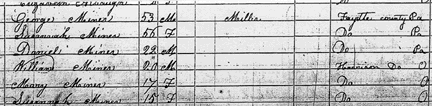 George Miner 53 M Miller Fayette county Pa
Susannah Miner 55 F Do Pa
Daniel Miner 22 M Do Pa
William Miner 20 M Harrison Do O
Mary Miner 17 F Do O
Susannah Miner 15 F Do